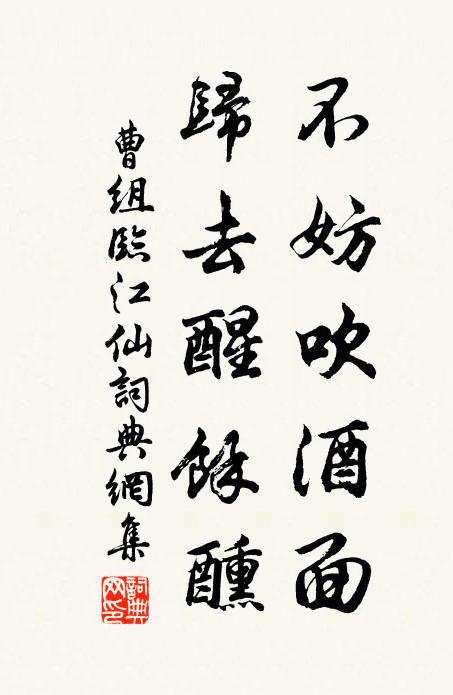 不妨吹酒面
歸去醒餘醺
曹組臨江仙詞典網集
詞典網印